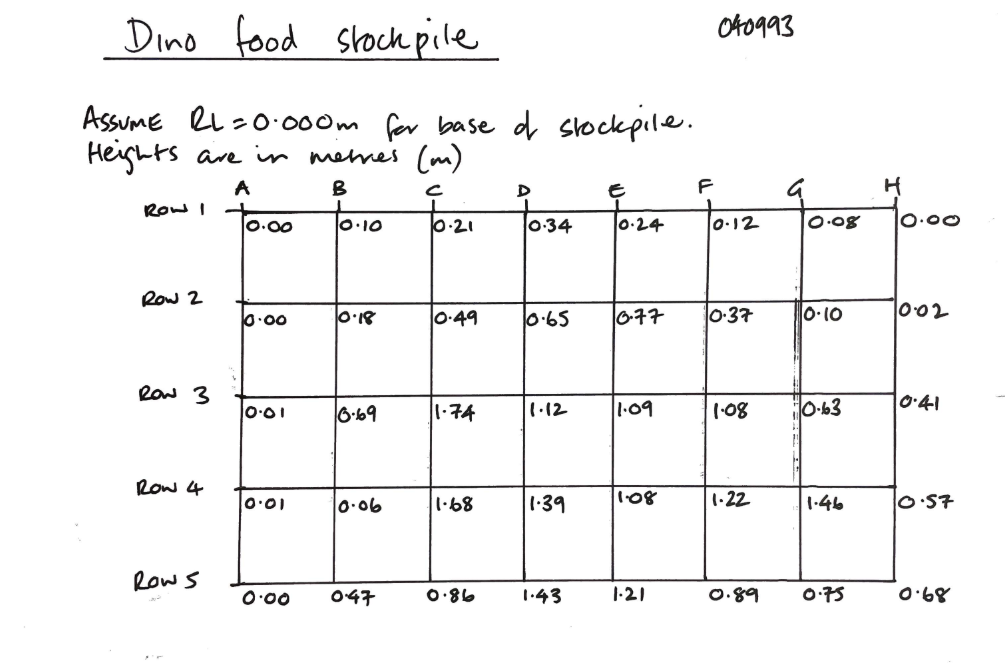 Dino food stockpile 040993
ASSUME RL=0.000m for base of stockpile.
Heights are in metres (m)
A B C D E F G H
Row 1 0.00 0.10 0.21 0.34 0.24 0.12 0.08 0.00
Row 2 0.00 0.18 0.49 0.65 0.77 0.37 0.10 0.02
Row 3 0.01 0.69 1.74 1.12 1.09 1.08 0.63 0.41
Row 4 0.01 0.06 1.68 1.39 1.08 1.22 1.46 0.57
Row 5 0.00 0.47 0.86 1.43 1.21 0.89 0.75 0.68